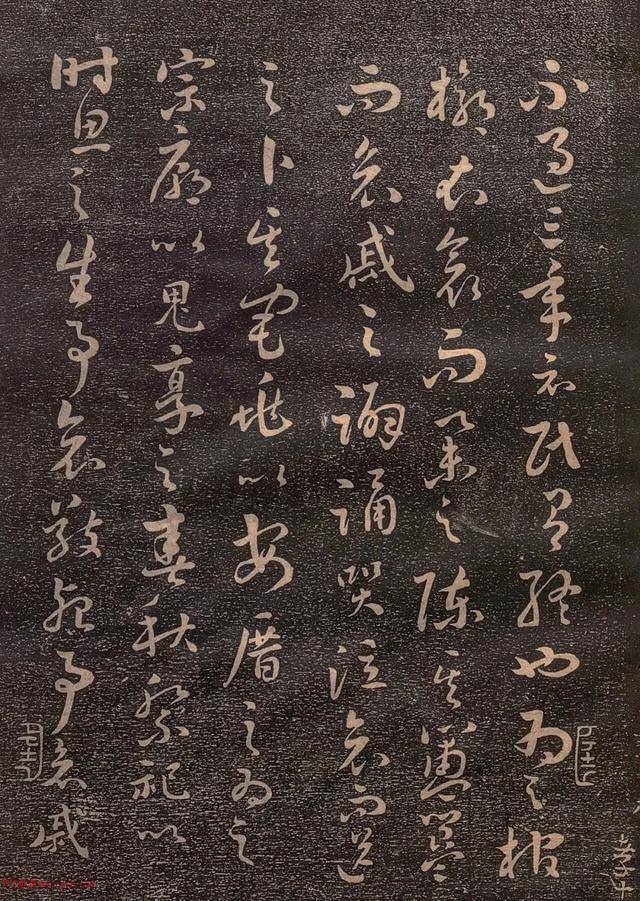 不過三年示民有終也為之棺
槨衣衾而舉之陳其簠簋
而哀戚之擗踊哭泣哀而送
之卜其宅兆以安厝之為之
宗廟以鬼享之春秋祭祀以
時思之生事愛敬死事哀戚